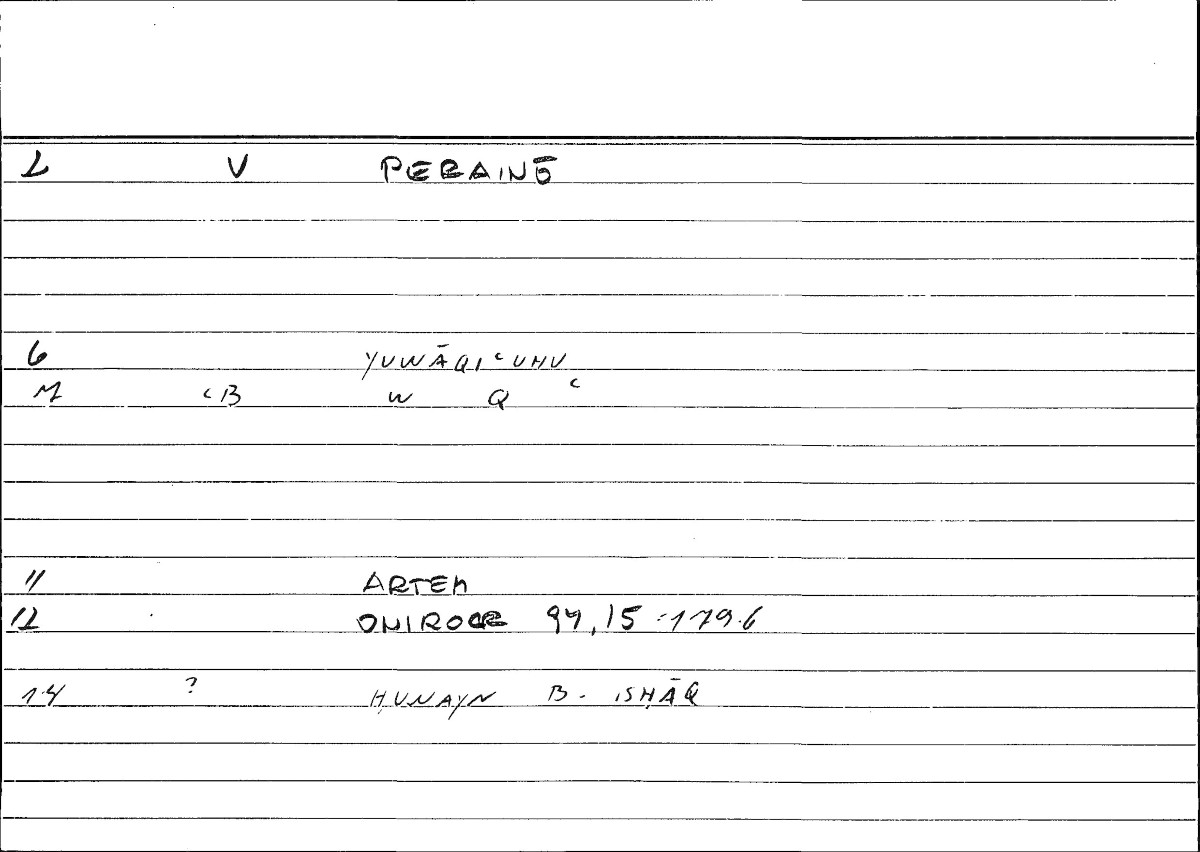 2 V PERAINŌ
6 YUWĀQIʿUHU
M ʿB W Q ʿ
11 ARTEM
12 ONIROCR 94,15 -179.6
14 ? ḤUNAYN B. ISḤĀQ